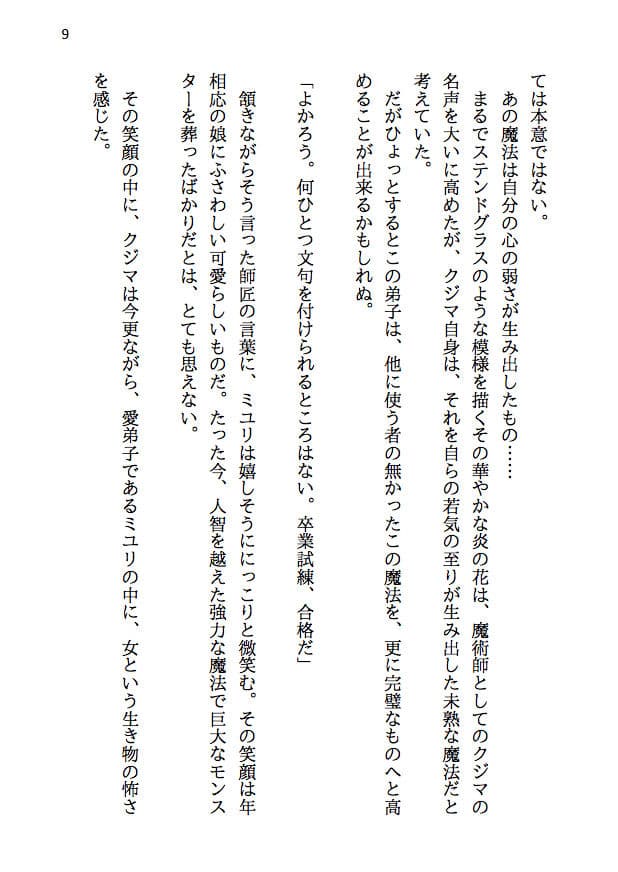 9
ては本意ではない。
あの魔法は自分の心の弱さが生み出したもの……
まるでステンドグラスのような模様を描くその華やかな炎の花は、魔術師としてのクジマの
名声を大いに高めたが、クジマ自身は、それを自らの若気の至りが生み出した未熟な魔法だと
考えていた。
だがひょっとするとこの弟子は、他に使う者の無かったこの魔法を、更に完璧なものへと高
めることが出来るかもしれぬ。
「よかろう。何ひとつ文句を付けられるところはない。卒業試練、合格だ」
頷きながらそう言った師匠の言葉に、ミユリは嬉しそうににっこりと微笑む。その笑顔は年
相応の娘にふさわしい可愛らしいものだ。たった今、人智を越えた強力な魔法で巨大なモンス
ターを葬ったばかりだとは、とても思えない。
その笑顔の中に、クジマは今更ながら、愛弟子であるミユリの中に、女という生き物の怖さ
を感じた。